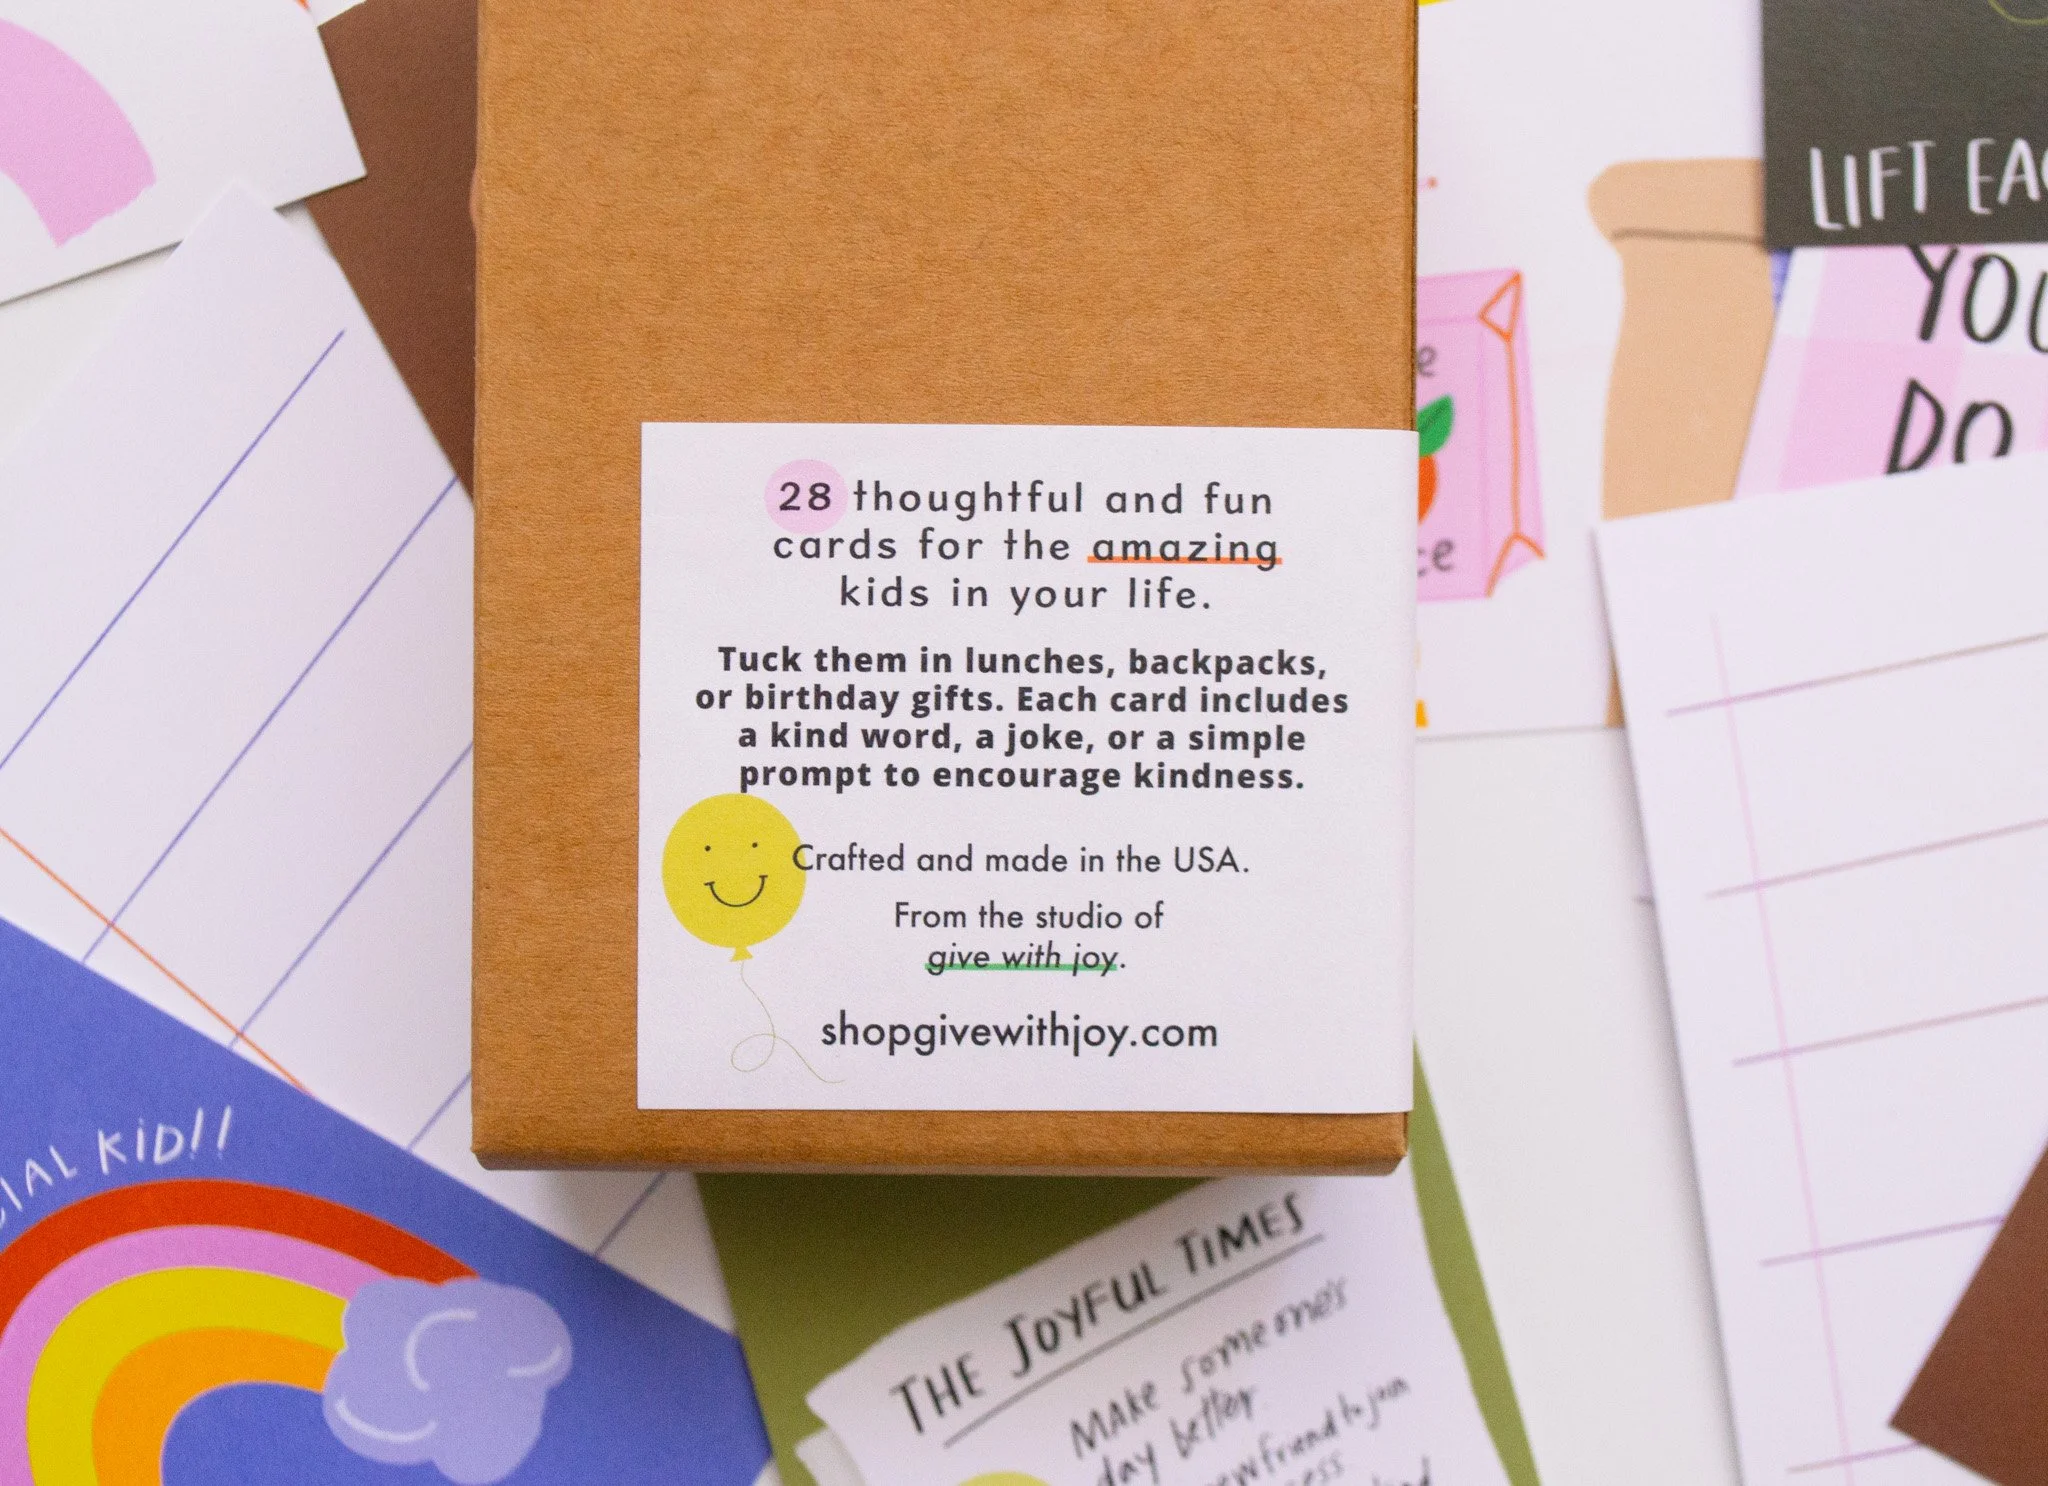 28 thoughtful and fun
cards for the amazing
kids in your life.
Tuck them in lunches, backpacks,
or birthday gifts. Each card includes
a kind word, a joke, or a simple
prompt to encourage kindness.
Crafted and made in the USA.
From the studio of
give with joy.
shopgivewithjoy.com
LIFT EAC
YOU
DO
e
ce
CIAL KiD!!
THE JOYFUL TIMES
MAKE someone's
day better.
new friend to join